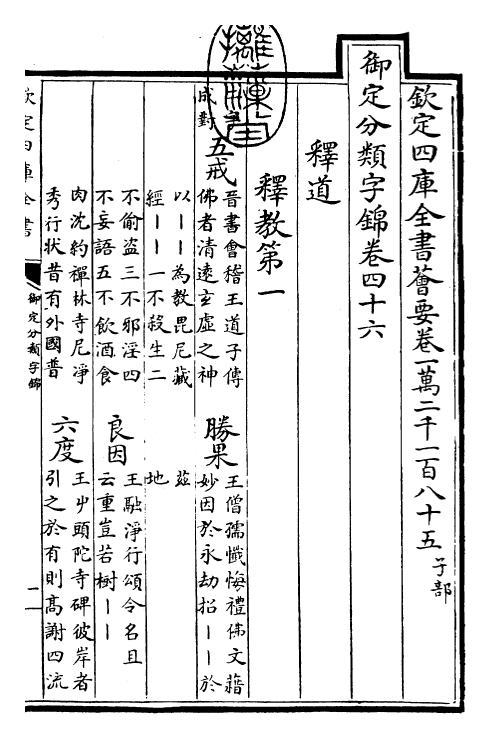 欽定四庫全書薈要卷一萬二千一百八十五 子部
御定分類字錦卷四十六
釋道
釋教第一
成對
五戒 晉書會稽王道子傳
佛者清遠玄虛之神
以丨丨為教毘尼藏
經丨丨一不殺生二
不偷盜三不邪淫四
不妄語五不飲酒食
肉沈約禪林寺尼淨
秀行狀昔有外國普
勝果 王僧孺懺悔禮佛文藉
妙因於永劫招丨丨於
茲
地
良因 王融淨行頌令名且
云重豈若樹丨丨
六度 王屮頭陀寺碑彼岸者
引之於有則高謝四流
欽定四庫全書
御定分類字錦